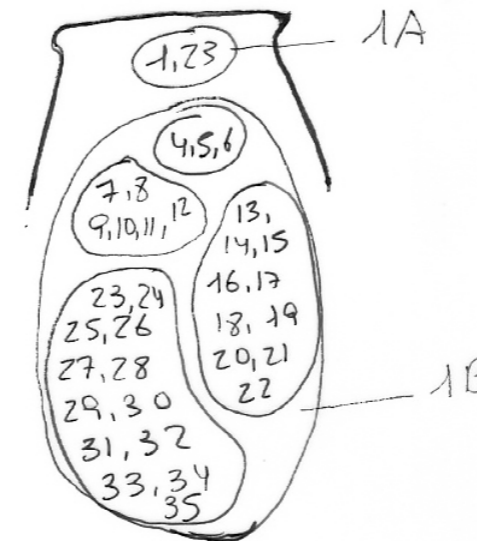 1A
1,23
4,5,6
7,8
9,10,11,12
13,
14,15
16,17
18, 19
20,21
22
23,24
25,26
27,28
29,30
31,32
33,34
35